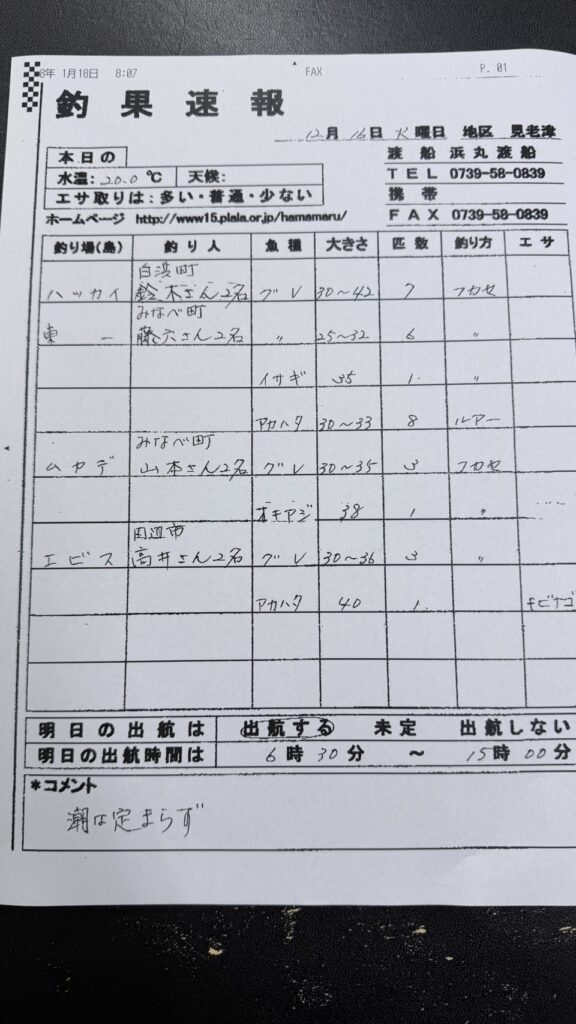 8年 1月18日 8:07 FAX P. 01
釣果速報
12月 16日 火曜日 地区 見老津
本日の
水温: 20.0 ℃ 天候:
エサ取りは: 多い・普通・少ない
渡船 浜丸渡船
TEL 0739-58-0839
携帯
FAX 0739-58-0839
ホームページ http://www15.plala.or.jp/hamamaru/
釣り場(島) 釣り人 魚種 大きさ 匹数 釣り方 エサ
白浜町
ハッカイ 鈴木さん2名 グレ 30〜42 7 フカセ
みなべ町
東一 藤六さん2名 〃 25〜32 6 〃
イサギ 35 1. 〃
アカハタ 30〜33 8 ルアー
みなべ町
ムカデ 山本さん2名 グレ 30〜35 3 フカセ
オキアジ 38 1 〃
田辺市
エビス 高井さん2名 グレ 30〜36 3 〃
アカハタ 40 1. キビナゴ
明日の出航は 出航する 未定 出航しない
明日の出航時間は 6時30分 〜 15時00分
*コメント
潮は定まらず